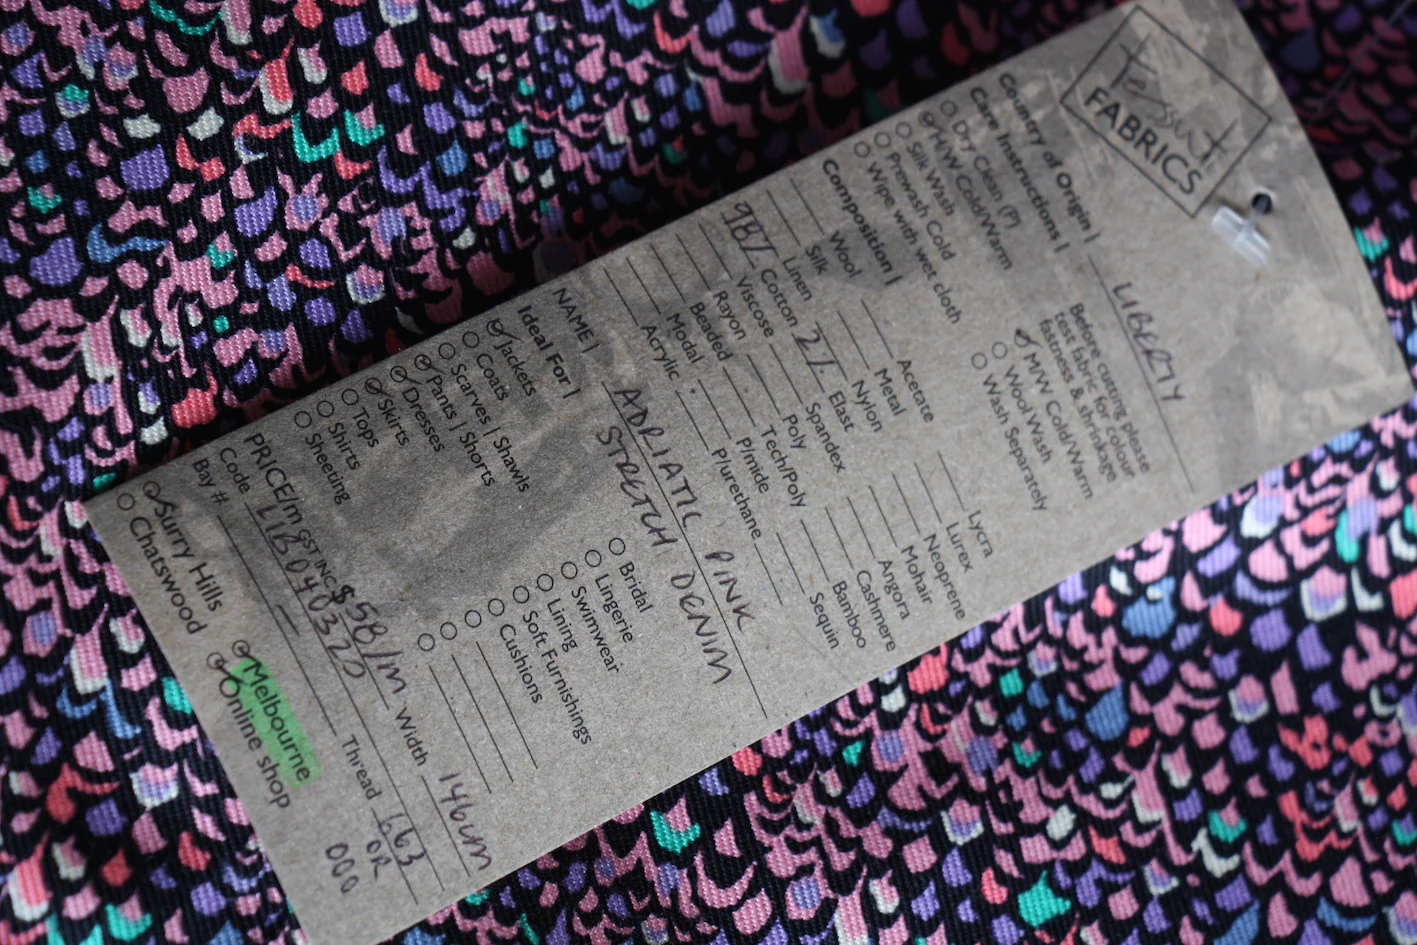 tessuti
FABRICS
Country of Origin | LIBERTY
Care Instructions |
Before cutting please
test fabric for colour
fastness & shrinkage
Dry Clean (P)
H/W Cold/Warm
Silk Wash
Prewash Cold
Wipe with wet cloth
M/W Cold/Warm
Wool Wash
Wash Separately
Composition |
Wool
Silk
Linen
98% Cotton
Viscose
Rayon
Beaded
Modal
Acrylic
Acetate
Metal
Nylon
2% Elast
Spandex
Poly
Tech/Poly
P/mide
P/urethane
Lycra
Lurex
Neoprene
Mohair
Angora
Cashmere
Bamboo
Sequin
NAME | ADRIATIC PINK
STRETCH DENIM
Ideal For |
Jackets
Coats
Scarves | Shawls
Pants | Shorts
Dresses
Skirts
Tops
Shirts
Sheeting
Bridal
Lingerie
Swimwear
Lining
Soft Furnishings
Cushions
PRICE/m GST INC. $58/m Width 146cm
Code LIB040320 Thread 663
OR
000
Bay # —
Surry Hills
Chatswood
Melbourne
Online shop